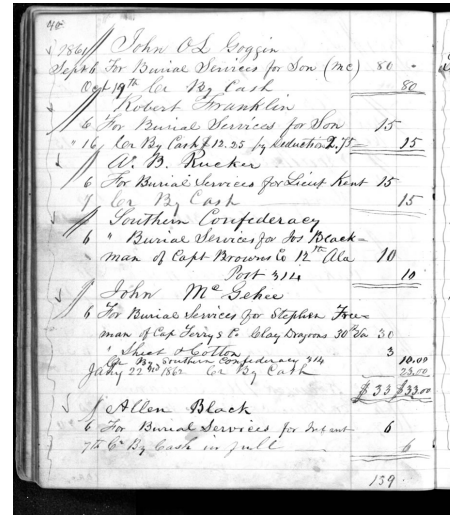 40
1861 John O L Goggin
Sept 6 For Burial Services for Son (Mc) 80
Oct 19th Cr By Cash 80
Robert Franklin
6 For Burial Services for Son 15
" 16 Cr By Cash $12.25 by deduction 2.75 = 15
W. B. Rucker
6 For Burial Services for Lieut Kent 15
7 Cr By Cash 15
Southern Confederacy
6 " Burial Services for Jos Black=
man of Capt Browns Co 12th Ala 10
Port 314 10
John McGehee
6 For Burial Services for Stephen Free=
man of Cap Terrys Co Clay Dragoons 30th Va 30
" Sheet & Cotton 3
Cr By Southern Confederacy 314 10.00
Jany 22nd 1862 Cr By Cash 23.00
$33 $33.00
Allen Black
6 For Burial Services for Infant 6
7th Cr By Cash in full 6
139